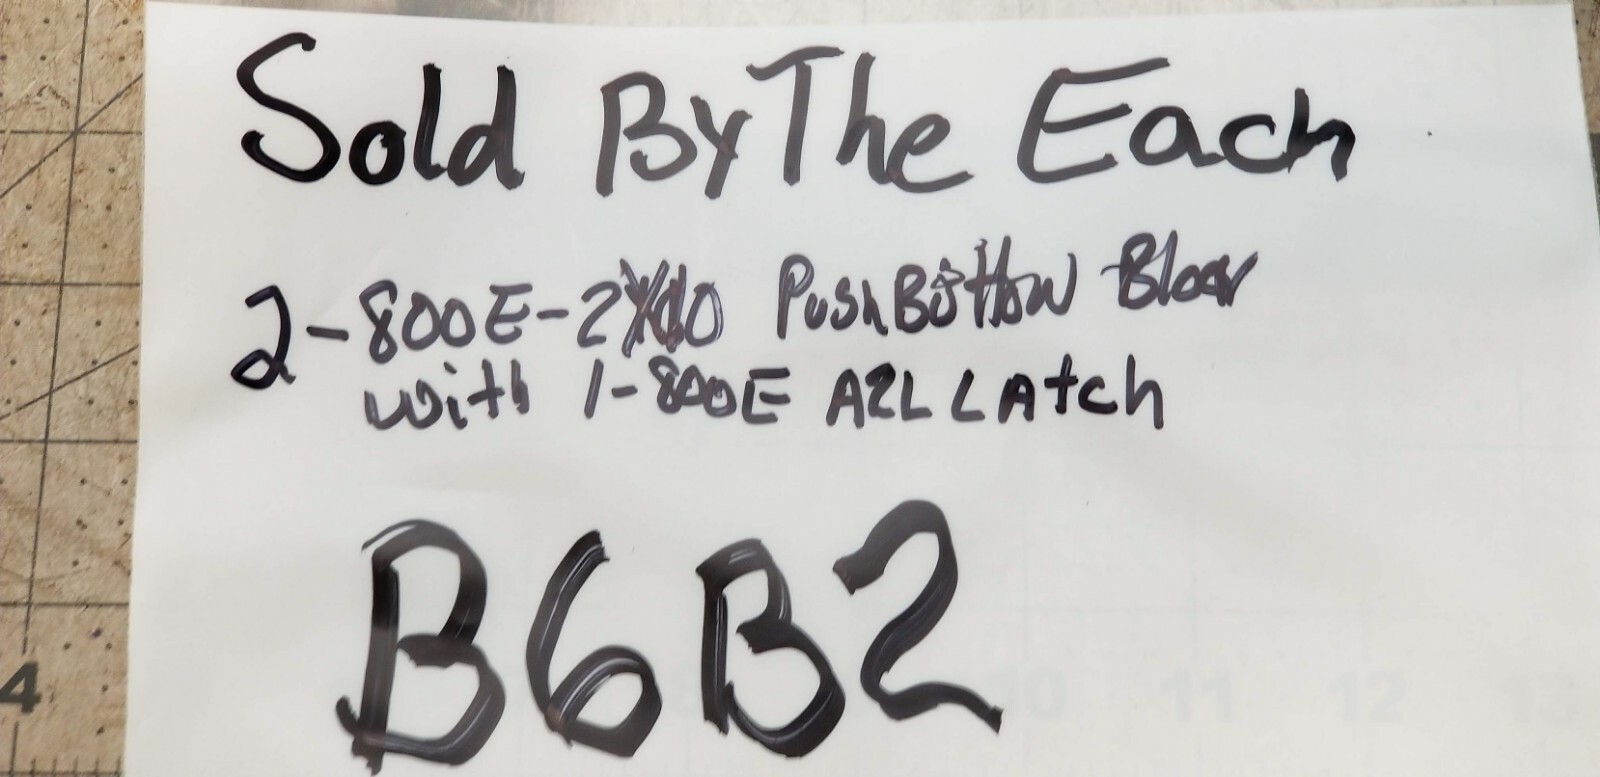 Sold By The Each
2-800E-2X10 PushButton
with 1-800E A2L LAtch
B6B2
4
10 11 12 13